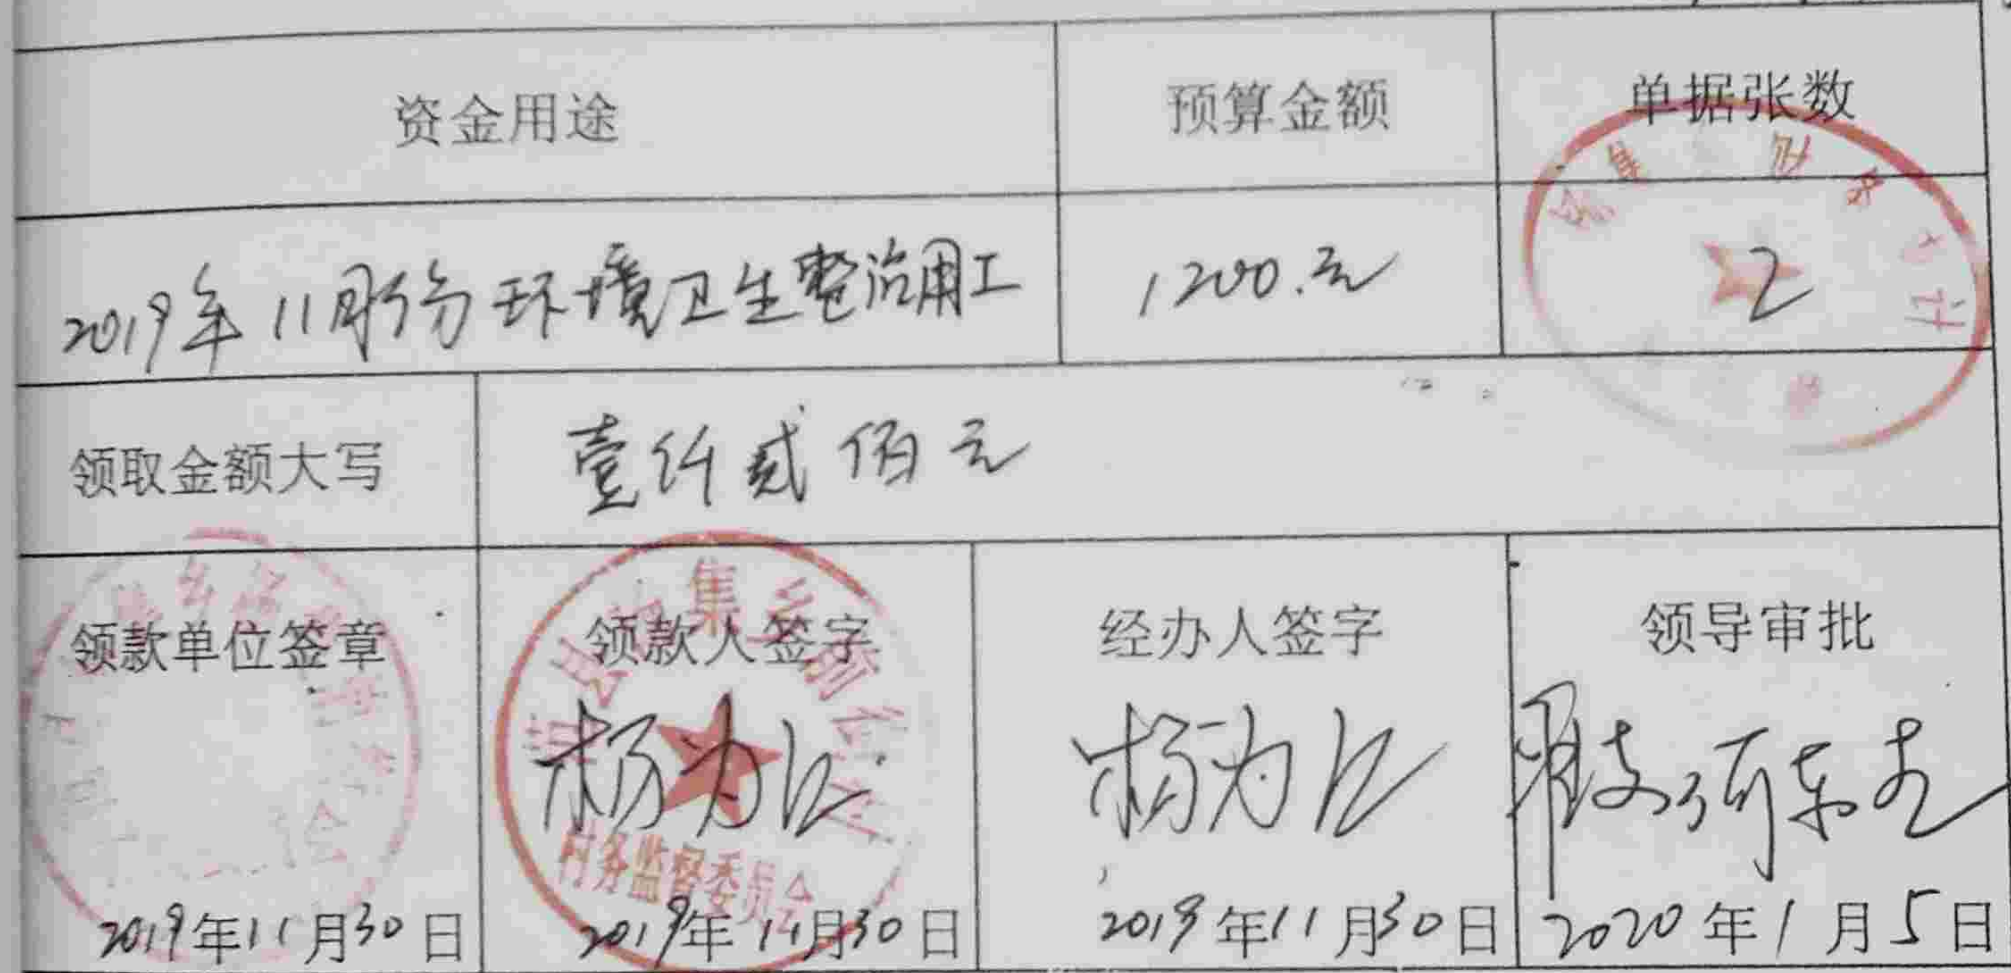 资金用途 预算金额 单据张数
2019年11月份环境卫生整治用工 1200.元 2
领取金额大写 壹仟贰佰元
领款单位签章 领款人签字 经办人签字 领导审批
杨为江 杨为江
村务监督委员会
2019年11月30日 2019年11月30日 2019年11月30日 2020年1月5日